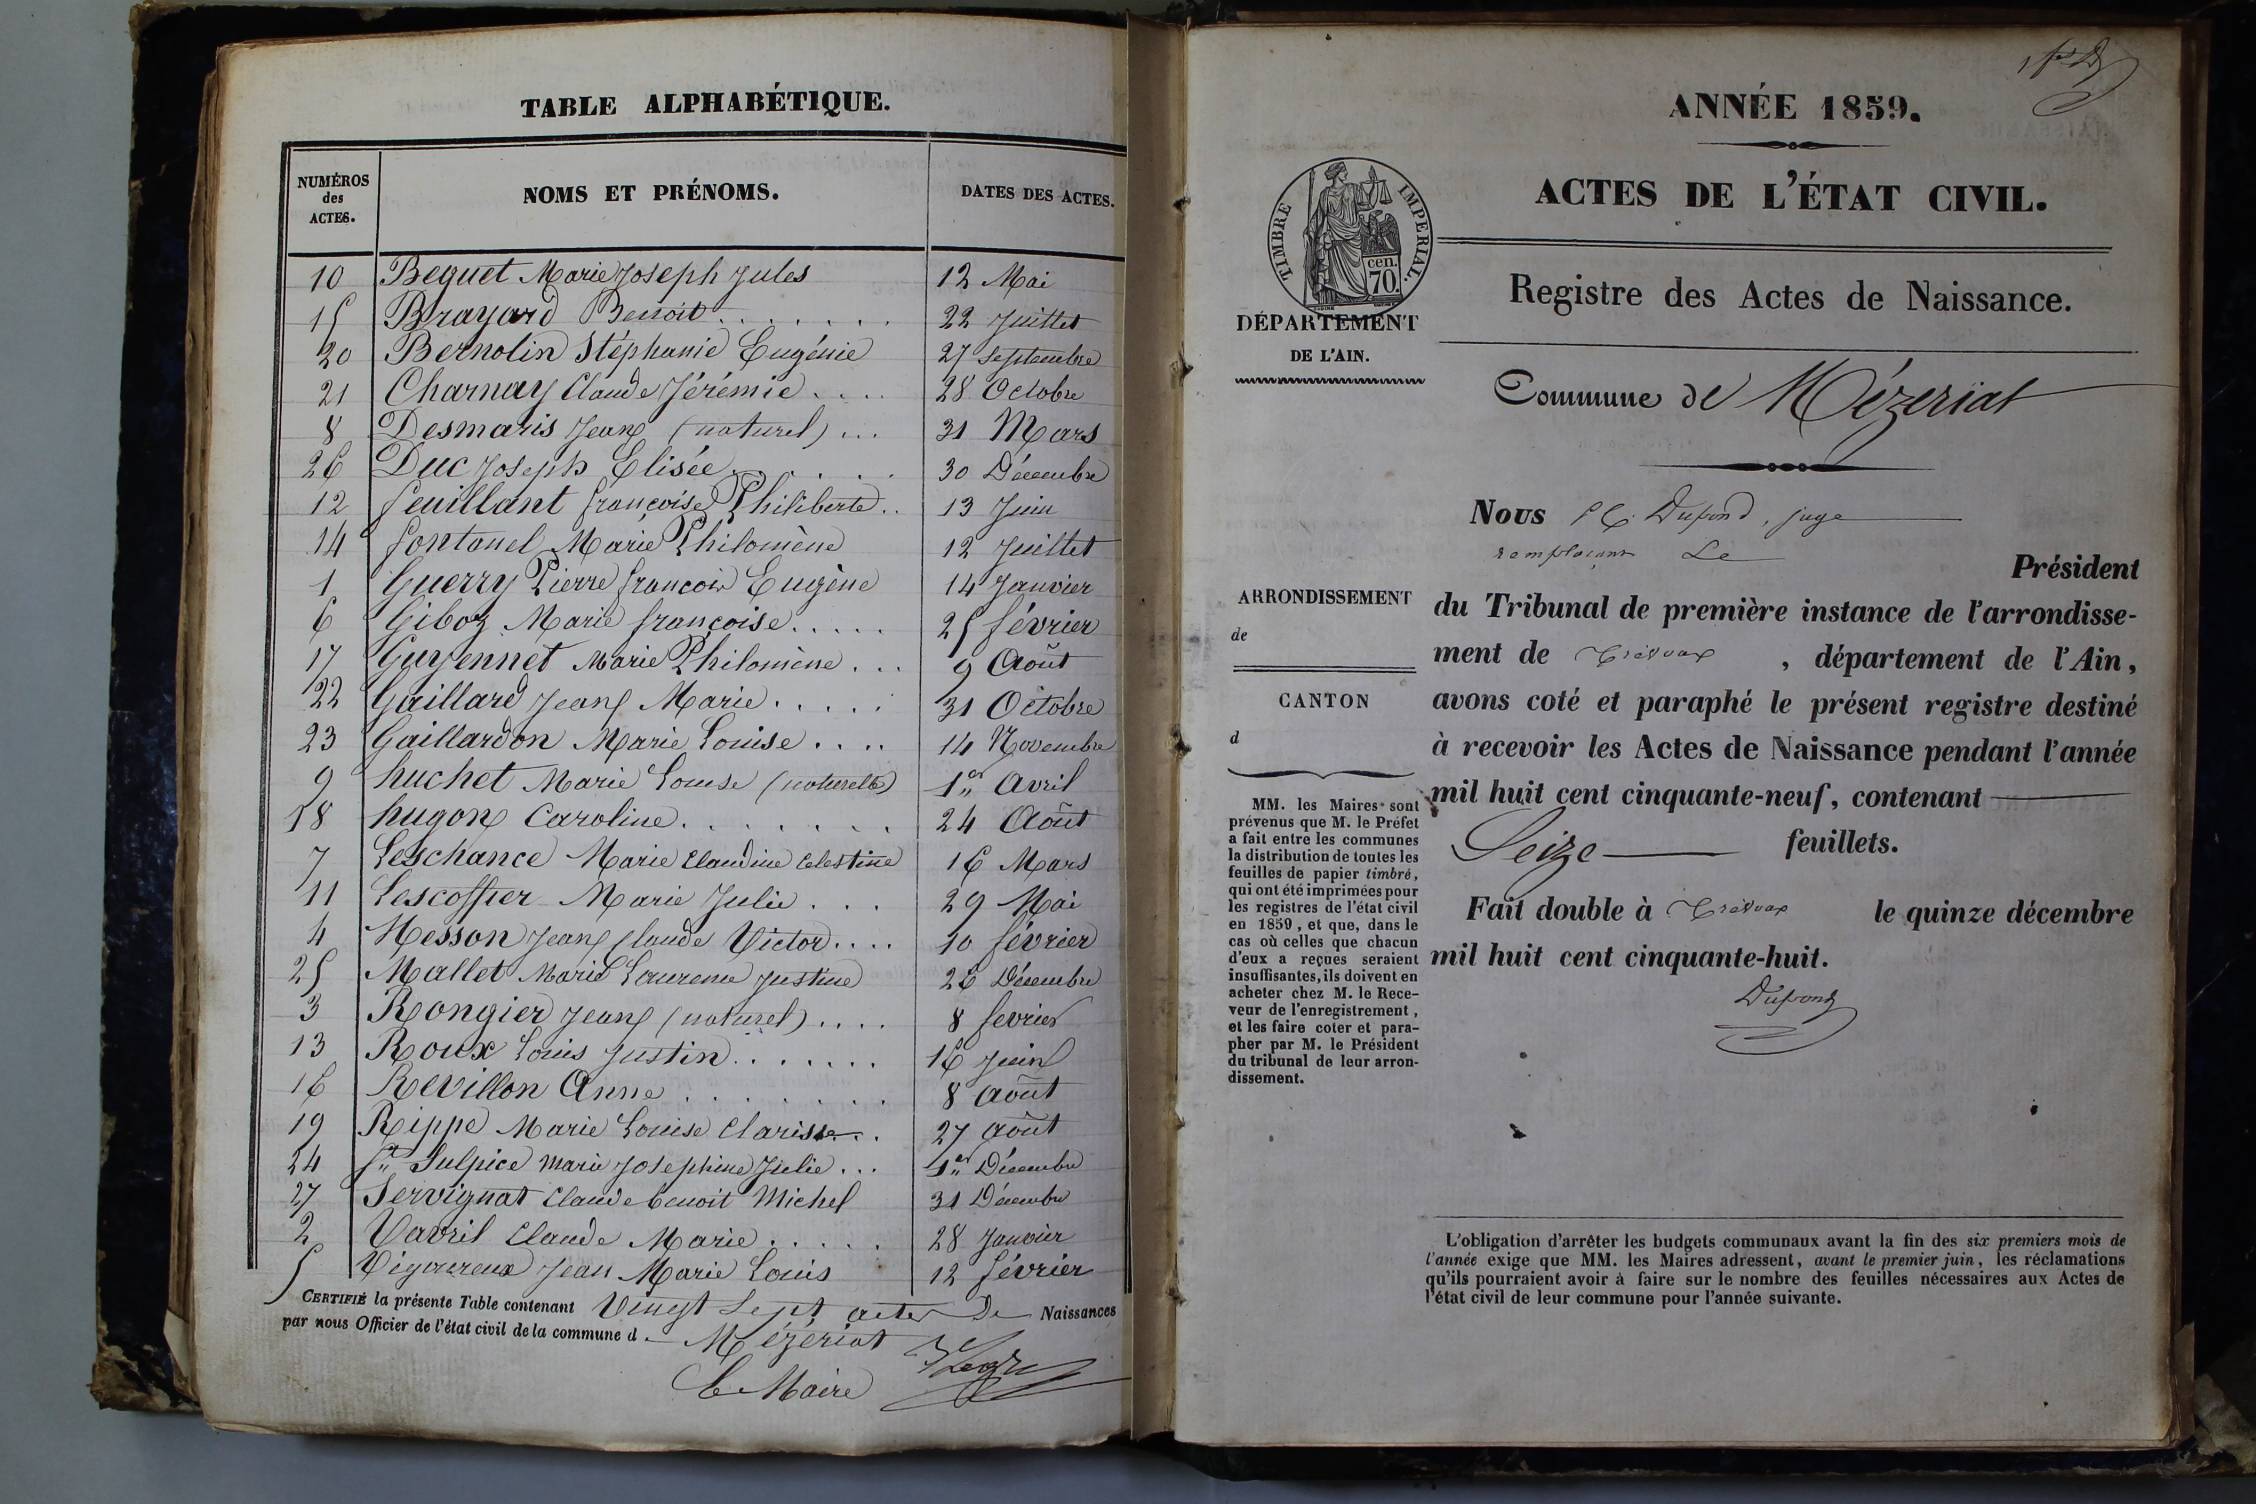 TABLE ALPHABÉTIQUE.
NUMÉROS des ACTES. NOMS ET PRÉNOMS. DATES DES ACTES.
10 Bequet Marie Joseph Jules 12 Mai
15 Brayard Benoit 22 Juillet
20 Bernolin Stéphanie Eugénie 27 Septembre
21 Charnay Claude Jérémie 28 Octobre
8 Desmaris Jean (naturel) 31 Mars
26 Duc Joseph Elisée 30 Décembre
12 feuillant françoise Philiberte 13 Juin
14 fontanel Marie Philomène 12 Juillet
1 Guerry Pierre françois Eugène 14 Janvier
6 Giboz Marie françoise 25 février
17 Guyennet Marie Philomène 9 Août
22 Gaillard Jean Marie 31 Octobre
23 Gaillardon Marie Louise 14 Novembre
9 huchet Marie Louise (naturelle) 1er Avril
18 hugon Caroline 24 Août
7 Leschance Marie Claudine Celestine 16 Mars
11 Lescoffier Marie Julie 29 Mai
4 Messon Jean Claude Victor 10 février
25 Mallet Marie Laurence Justine 26 Décembre
3 Rongier Jean (naturel) 8 fevrier
13 Roux Louis Justin 16 Juin
16 Revillon Anne 8 août
19 Rippe Marie Louise Clarisse 27 août
24 St Sulpice Marie Josephine Julie 1er Décembre
27 Servignat Claude benoit Michel 31 Décembre
2 Vavril Claude Marie 28 Janvier
5 Vigoureux Jean Marie Louis 12 février
CERTIFIÉ la présente Table contenant Vingt Sept actes de Naissances
par nous Officier de l'état civil de la commune d Mézériat
Le Maire
ANNÉE 1859.
ACTES DE L'ÉTAT CIVIL.
TIMBRE IMPERIAL.
cen.
70.
DÉPARTEMENT
DE L'AIN.
Registre des Actes de Naissance.
Commune de Mézeriat
Nous Dupond, juge
remplaçant Le
Président
du Tribunal de première instance de l'arrondisse-
ment de Trévoux, département de l'Ain,
avons coté et paraphé le présent registre destiné
à recevoir les Actes de Naissance pendant l'année
mil huit cent cinquante-neuf, contenant
Seize feuillets.
Fait double à Trévoux le quinze décembre
mil huit cent cinquante-huit.
Dupond
ARRONDISSEMENT
de
CANTON
d
MM. les Maires sont
prévenus que M. le Préfet
a fait entre les communes
la distribution de toutes les
feuilles de papier timbré,
qui ont été imprimées pour
les registres de l'état civil
en 1859, et que, dans le
cas où celles que chacun
d'eux a reçues seraient
insuffisantes, ils doivent en
acheter chez M. le Rece-
veur de l'enregistrement,
et les faire coter et para-
pher par M. le Président
du tribunal de leur arron-
dissement.
L'obligation d'arrêter les budgets communaux avant la fin des six premiers mois de
l'année exige que MM. les Maires adressent, avant le premier juin, les réclamations
qu'ils pourraient avoir à faire sur le nombre des feuilles nécessaires aux Actes de
l'état civil de leur commune pour l'année suivante.